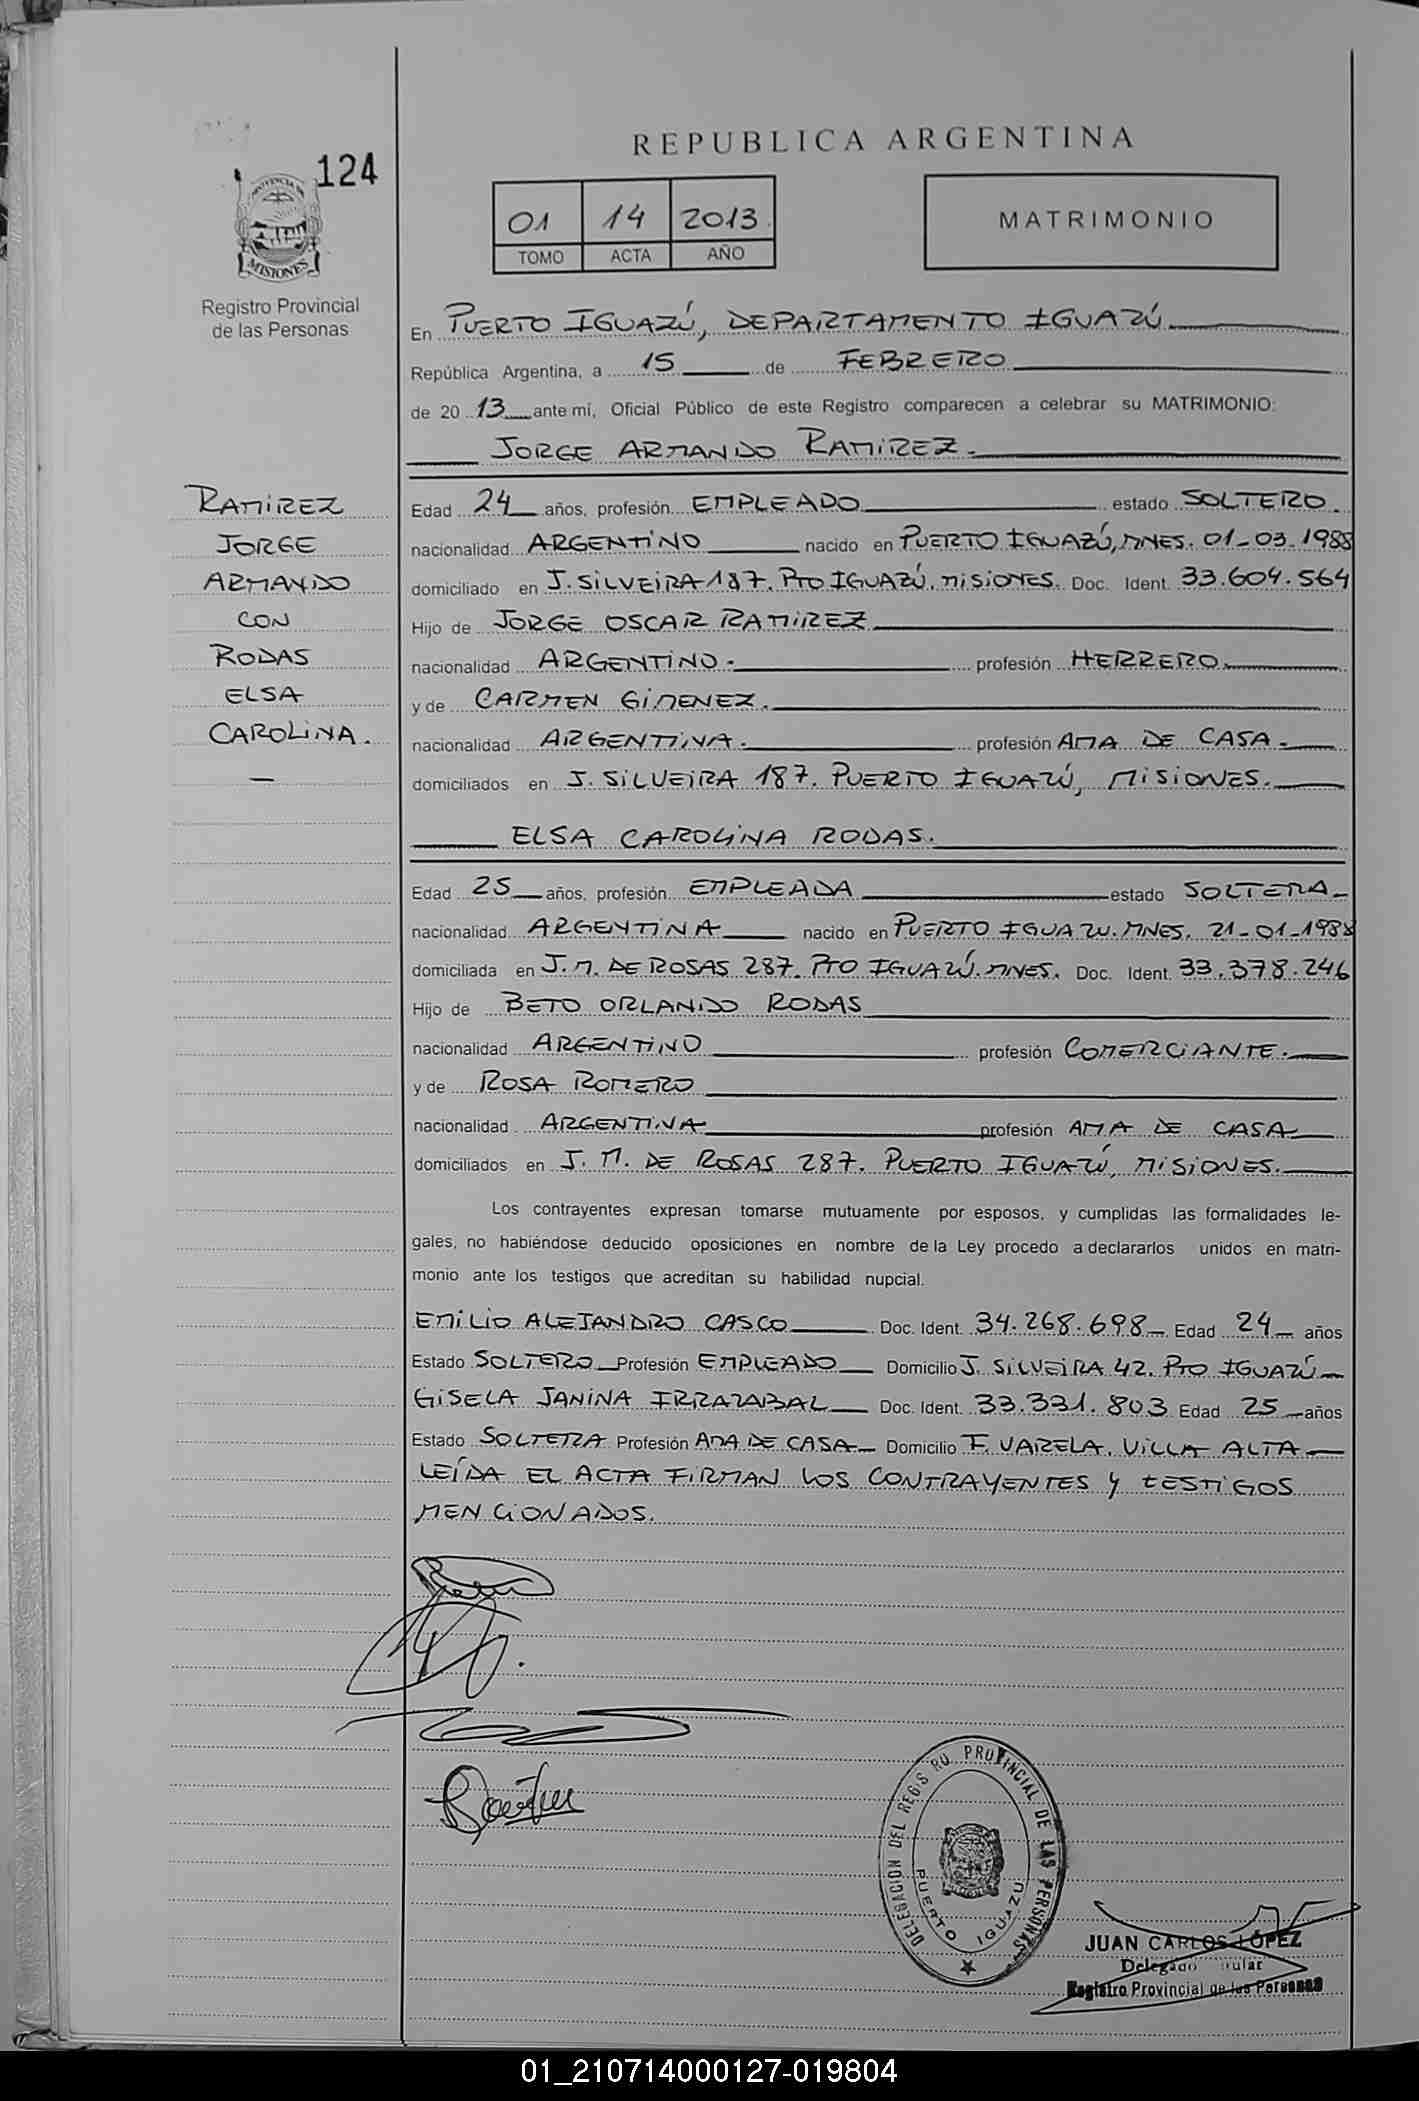 REPUBLICA ARGENTINA
124
01 14 2013
TOMO ACTA AÑO
MATRIMONIO
MISIONES
Registro Provincial
de las Personas
RAMIREZ
JORGE
ARMANDO
CON
RODAS
ELSA
CAROLINA.
En PUERTO IGUAZÚ, DEPARTAMENTO IGUAZÚ
República Argentina, a 15 de FEBRERO
de 20 13 ante mí, Oficial Público de este Registro comparecen a celebrar su MATRIMONIO:
JORGE ARMANDO RAMIREZ.
Edad 24 años, profesión EMPLEADO estado SOLTERO.
nacionalidad ARGENTINO nacido en PUERTO IGUAZÚ, MNES. 01-03-1988
domiciliado en J. SILVEIRA 187. PTO IGUAZÚ. MISIONES. Doc. Ident. 33.604.564
Hijo de JORGE OSCAR RAMIREZ
nacionalidad ARGENTINO. profesión HERRERO.
y de CARMEN GIMENEZ.
nacionalidad ARGENTINA. profesión AMA DE CASA.
domiciliados en J. SILVEIRA 187. PUERTO IGUAZÚ, MISIONES.
ELSA CAROLINA RODAS.
Edad 25 años, profesión EMPLEADA estado SOLTERA
nacionalidad ARGENTINA nacido en PUERTO IGUAZU. MNES. 21-01-1988
domiciliada en J.M. DE ROSAS 287. PTO IGUAZÚ. MNES. Doc. Ident. 33.378.246
Hijo de BETO ORLANDO RODAS
nacionalidad ARGENTINO profesión COMERCIANTE.
y de ROSA ROMERO
nacionalidad ARGENTINA profesión AMA DE CASA
domiciliados en J. M. DE ROSAS 287. PUERTO IGUAZÚ, MISIONES.
Los contrayentes expresan tomarse mutuamente por esposos, y cumplidas las formalidades le-
gales, no habiéndose deducido oposiciones en nombre de la Ley procedo a declararlos unidos en matri-
monio ante los testigos que acreditan su habilidad nupcial.
EMILIO ALEJANDRO CASCO Doc. Ident. 34.268.698 Edad 24 años
Estado SOLTERO Profesión EMPLEADO Domicilio J. SILVEIRA 42. PTO IGUAZÚ
GISELA JANINA IRRAZABAL Doc. Ident. 33.331.803 Edad 25 años
Estado SOLTERA Profesión AMA DE CASA Domicilio F. VARELA. VILLA ALTA
LEÍDA EL ACTA FIRMAN LOS CONTRAYENTES Y TESTIGOS
MENCIONADOS.
DELEGACIÓN DEL REGISTRO PROVINCIAL DE LAS PERSONAS
PUERTO IGUAZU
JUAN CARLOS LÓPEZ
Delegado Titular
Registro Provincial de las Personas
01_210714000127-019804